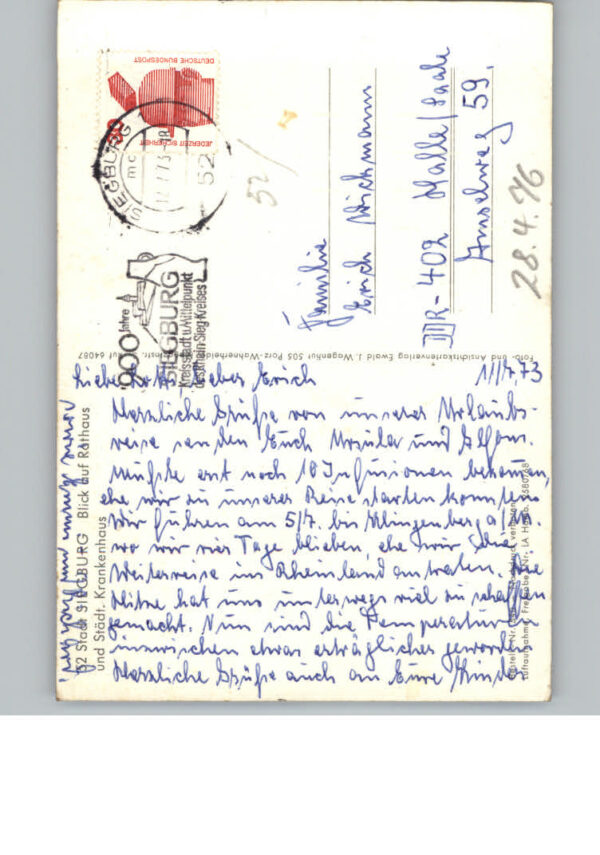 DEUTSCHE BUNDESPOST
JEDERZEIT SICHERHEIT
30
SIEGBURG
mc
52
900 Jahre
SIEGBURG
Kreisstadt u. Mittelpunkt
des Rhein-Sieg-Kreises
52/
Familie
Erich Wichmann
DDR-402 Halle/Saale
Amselweg 59.
28.4.76
Foto- und Ansichtskartenverlag Ewald J. Wagenknr 505 Porz-Wahnerheide
Ruf 64087
52 Stadt SIEGBURG Blick auf Rathaus
und Städt. Krankenhaus
11/7.73
Liebe Lotte, lieber Erich
Herzliche Grüße von unserer Urlaubs-
reise senden Euch Ursula und Alfons.
Mußte erst noch 10 Infusionen bekommen,
ehe wir zu unserer Reise starten konnten.
Wir fuhren am 5/7. bis Klingenberg a/M.
wo wir vier Tage blieben, ehe wir die
Weiterreise ins Rheinland antraten. Die
Hitze hat uns unterwegs viel zu schaffen
gemacht. Nun sind die Temperaturen
inzwischen etwas erträglicher geworden.
Herzliche Grüße auch an Eure Kinder